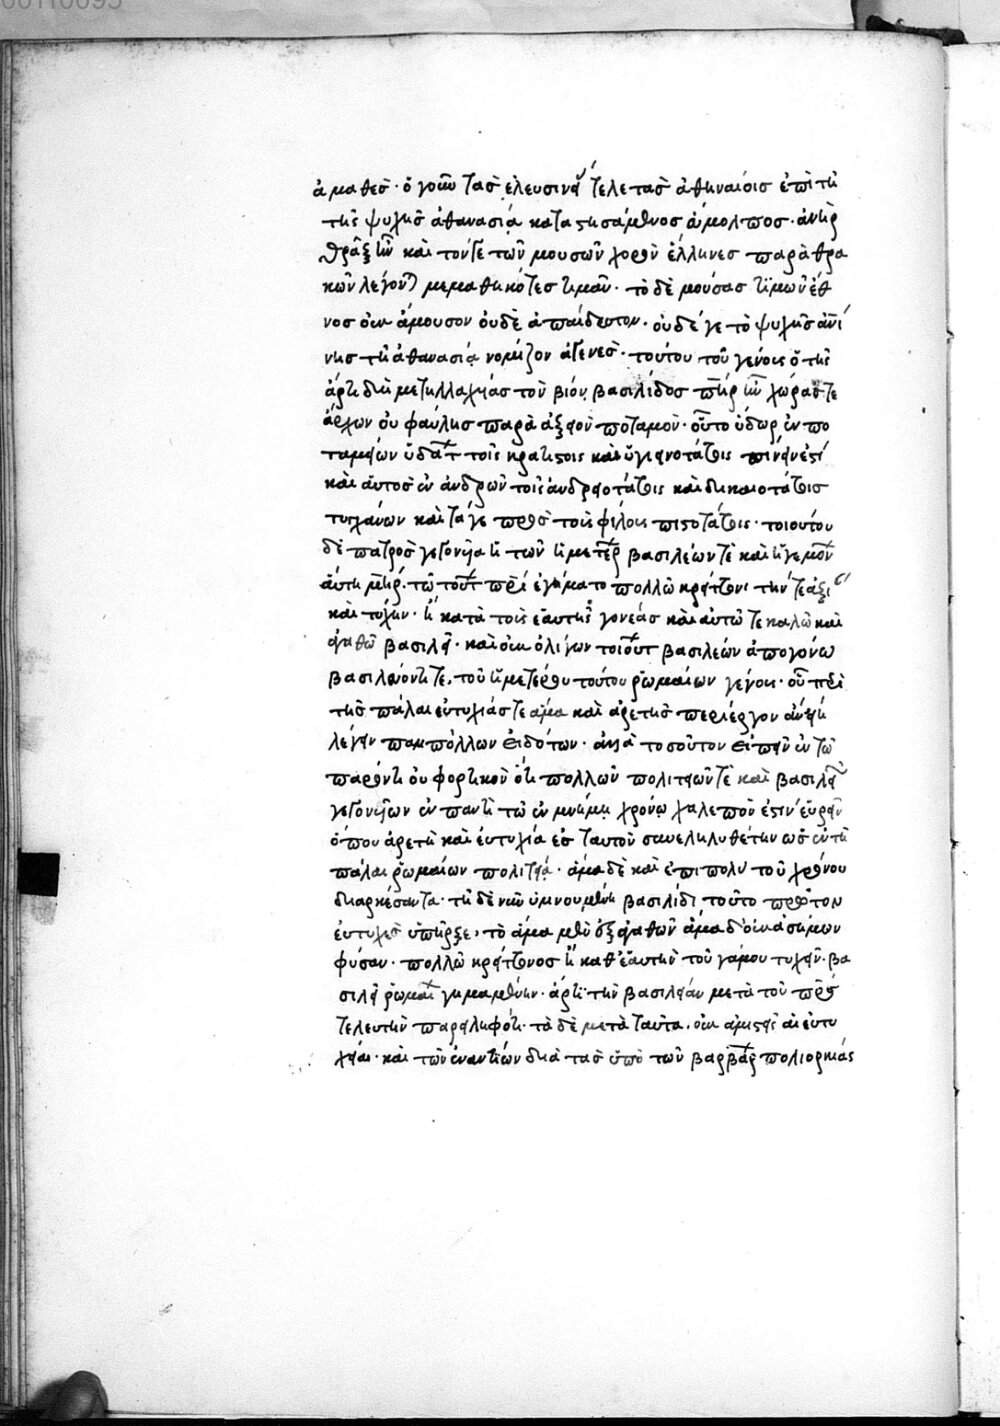 ἀμαθεσ· ὁ γοῦν τασ ἐλευσινι τελετασ ἀθηναίοισ ἐπὶ τῆ
τῆς ψυχῆσ ἀθανασία καταστησάμενοσ ἀμολποσ· ἀνὴρ
θρᾶξ ἦν καὶ τόν γε τῶν μουσῶν χορὸν ἕλληνεσ παρὰ θρα
κῶν λέγονται μεμαθηκότεσ τιμᾶν· τὸ δὲ μούσασ τιμῶν ἔθ
νοσ οὐκ ἄμουσον οὐδὲ ἀπαίδευτον· οὐδέ γε τὸ ψυχῆσ
νησ τῆ ἀθανασία νομίζον ἀγενεσ· τούτου τοῦ γένους ὁ τῆς
ἄρτι δὴ μετηλλαχυίασ τὸν βιόν βασιλίδοσ πατὴρ ἦν χώρασ τε
ἄρχων οὐ φαύλησ παρὰ ἀξιον ποταμὸν· οὗτο ὕδωρ ἐν πο
ταμείων ὕδατ τοῖς κρατίστοις καὶ ὑγιεινοτάτοις πίνειν ἐστί
καὶ αὐτοσ ἐν ἀνδρῶν τοῖς ἀνδρειοτάτοις καὶ δικαιοτάτοισ
τυγχάνων καὶ τά γε πρὸσ τοὺς φίλους πιστοτάτοις· τοιούτου
δὲ πατρὸσ γεγονυῖα ἡ τῶν ἡμετέρ βασιλέων τὲ καὶ ἡγεμόν
αὕτη μητήρ· τῶ τούτ πατρί ἐγήματο πολλῶ κρείττονι τήν τε ἀξι
καὶ τύχην· ἢ κατὰ τοὺς ἑαυτῆς γονέασ καὶ αὐτῶ τε καλῶ καὶ
ἀγαθῶ βασιλεῖ· καὶ οὐκ ὀλίγων τοιούτ βασιλεών ἀπογόνω
βασιλεύοντί τε, τοῦ ἡμετέρου τούτου ῥωμαίων γένους· οὗ περὶ
τῆσ πάλαι εὐτυχίασ τε ἅμα καὶ ἀρετῆσ περιέργον ἀν εἴη
λέγειν παμπόλλων εἰδότων· ἀλλὰ τοσοῦτον εἰπεῖν ἐν τῶ
παρόντι οὐ φορτικὸν ὅτι πολλῶν πολιτειῶν τὲ καὶ βασιλει
γεγονυιῶν ἐν παντὶ τῶ ἐν μνήμη χρόνω χαλεπὸν ἐστὶν εὑρεῖν
ὅπου ἀρετὴ καὶ εὐτυχία ἐσ ταυτὸν συνεληλυθέτην ὡσ ἐν τῆ
πάλαι ῥωμαίων πολιτεία· ἅμα δὲ καὶ ἐπιπολὺ τοῦ χρόνου
διαρκέσαντα· τῆ δὲ νῦν ὑμνουμένη βασιλίδι τοῦτο πρῶτον
εὐτυχεσ ὑπῆρξε, τὸ ἅμα μὲν ἐξ ἀγαθῶν ἅμα δ' οὐκ ἀσήμων
φύσαν· πολλῶ κρείττονοσ ἢ καθ' ἑαυτὴν τοῦ γάμου τυχεῖν· βα
σιλεῖ ῥωμαί γημαμένην· ἄρτι τὴν βασιλείαν μετὰ τοῦ πατρὸσ
τελευτὴν παρειληφότι· τὰ δὲ μετὰ ταῦτα, οὐκ ἀμιγεῖ αἱ εὐτυ
χίαι· καὶ τῶν ἐναντίων διὰ τασ ὑπὸ τῶν βαρβάρ πολιορκίας